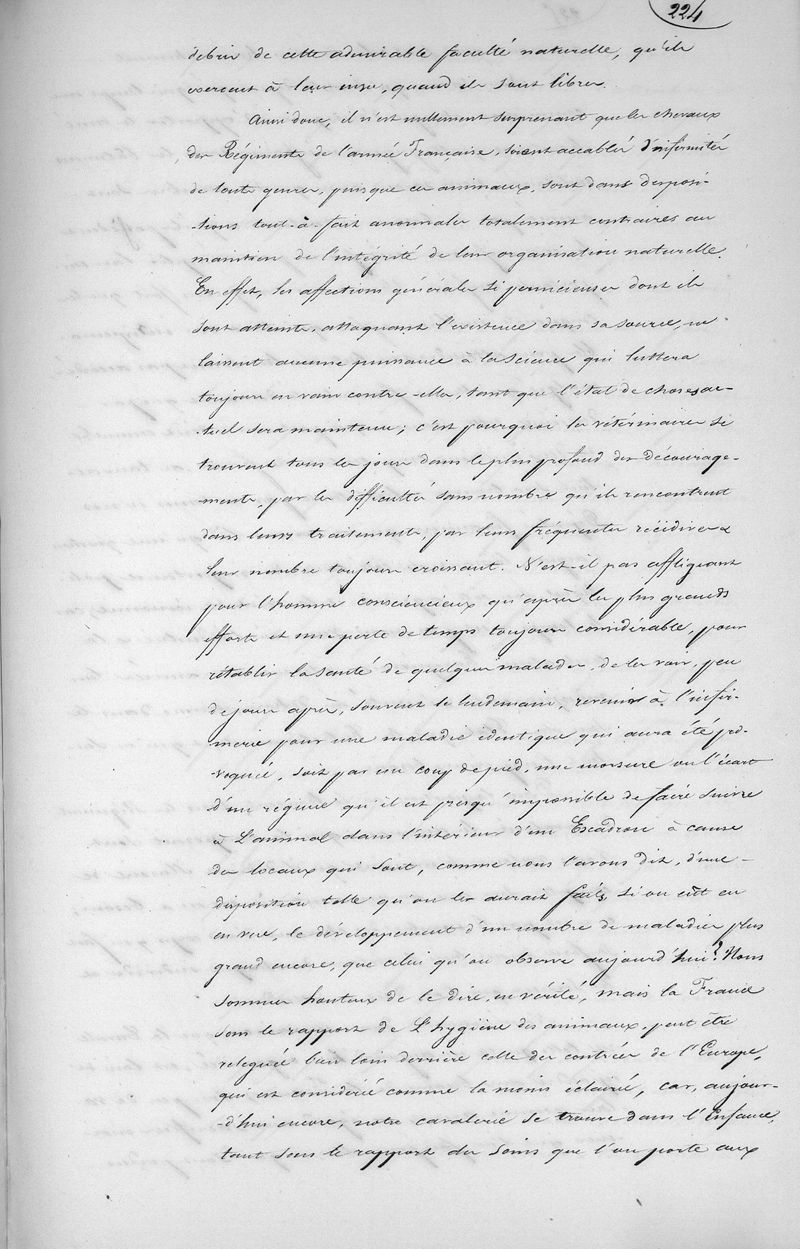 224
débris de cette admirable faculté naturelle, qu'ils
exercent à leur insu, quand ils sont libres.
Ainsi donc, il n'est nullement surprenant que les chevaux
des Régiments de l'armée Française, soient accablés d'infirmités
de toute genres, puisque ces animaux, sont dans disposi-
-tions tout-à-fait anormales totalement contraires au
maintien de l'intégrité de leur organisation naturelle.
En effet, les affections générales si pernicieuses dont ils
sont atteints, attaquant l'existence dans sa source, ne
laissent aucune puissance à la science qui luttera
toujours en vain contre elles, tant que l'état de choses ac-
-tuel sera maintenu; c'est pourquoi les vétérinaires se
trouvent tous les jours dans le plus profond des décourage-
-ments, par les difficultés sans nombre qu'ils rencontrent
dans leurs traitements, par leurs fréquentes récidives &
leur nombre toujours croissant. N'est-il pas affligeant
pour l'homme consciencieux qu'après les plus grands
efforts et une perte de temps toujours considérable, pour
rétablir la santé de quelques malades, de les voir, peu
de jours après, souvent le lendemain, revenir à l'infir-
merie pour une maladie identique qui aura été pro-
voquée, soit par un coup de pied, une morsure ou l'écart
d'un régime qu'il est presqu'impossible de faire suivre
à L'animal dans l'intérieur d'un Escadron à cause
des locaux qui sont, comme nous l'avons dit, d'une
disposition telle qu'on les aurait faits, si on eût eu
en vue, le développement d'un nombre de maladies plus
grand encore, que celui qu'on observe aujourd'hui? Nous
sommes honteux de le dire, en vérité, mais la France
sous le rapport de L'hygiène des animaux, peut être
releguée bien loin derrière celle des contrées de l'Europe,
qui est considérée comme la moins éclairée, car, aujour-
-d'hui encore, notre cavalerie se trouve dans l'Enfance,
tant sous le rapport des soins que l'on porte aux